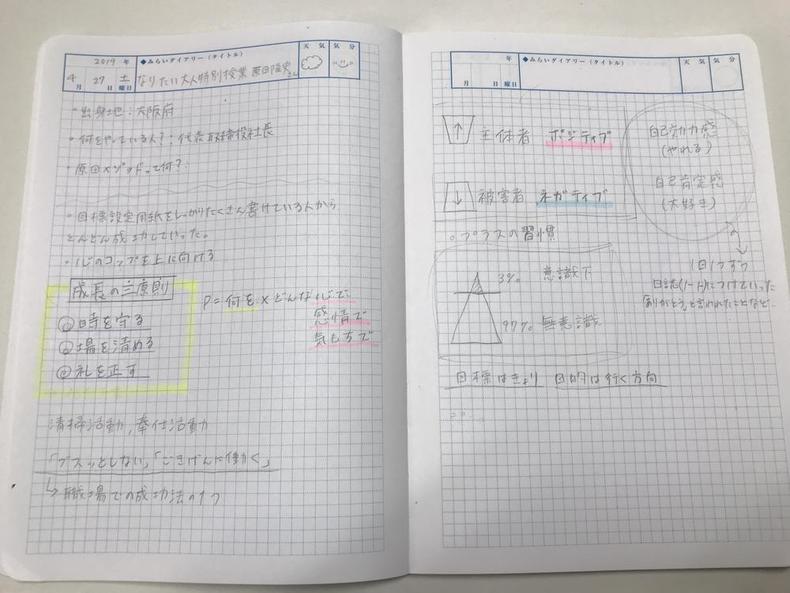 2019 年
◆みらいダイアリー（タイトル）
天 気
気 分
4 月 27 日 土 曜日
なりたい大人特別授業 原田隆史さん
・出身地：大阪府
・何をやっている人？：代表取締役社長
・原田メソッドって何？：
・目標設定用紙をしっかりたくさん書けている人から
どんどん成功していった。
・心のコップを上に向ける
成長の三原則
①時を守る
②場を清める
③礼を正す
P = 何を × どんな心で、
感情で
気もちで
清掃活動，奉仕活動
「ブスッとしない」，「ごきげんに働く」
↳職場での成功法の1つ
年
月 日 曜日
◆みらいダイアリー（タイトル）
天 気
気 分
↑ 主体者 ポジティブ
↓ 被害者 ネガティブ
自己効力感
(やれる)
自己肯定感
(大好き)
。プラスの習慣
1日1つずつ
日誌(ノート)につけていった
ありがとうと言われたことなど‥
3% 意識下
97% 無意識
目標はきょり 目的は行く方向